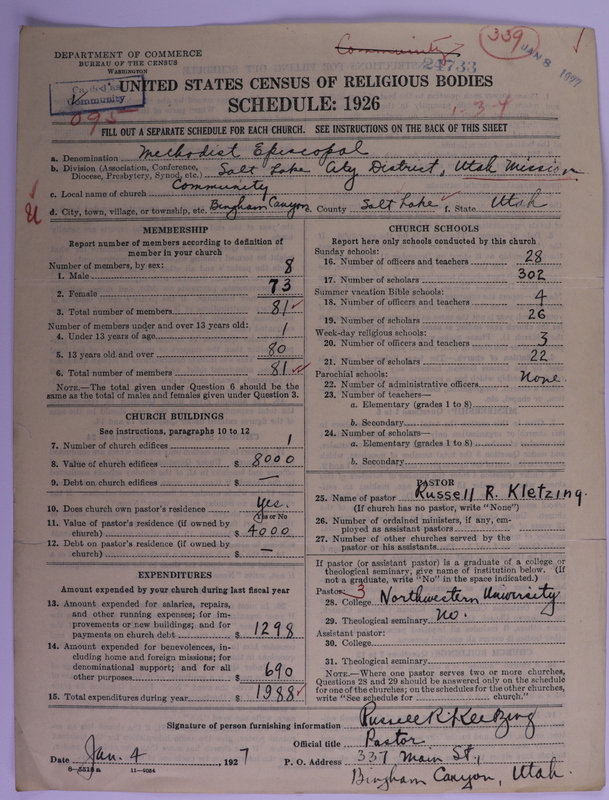 DEPARTMENT OF COMMERCE
BUREAU OF THE CENSUS
WASHINGTON
Community
339
24733
JAN 8 1927
Community
095
UNITED STATES CENSUS OF RELIGIOUS BODIES
SCHEDULE: 1926
1-3-4
FILL OUT A SEPARATE SCHEDULE FOR EACH CHURCH. SEE INSTRUCTIONS ON THE BACK OF THIS SHEET
a. Denomination Methodist Episcopal
b. Division (Association, Conference, Diocese, Presbytery, Synod, etc.) Salt Lake City District, Utah Mission
c. Local name of church Community
d. City, town, village, or township, etc. Bingham Canyon e. County Salt Lake f. State Utah
MEMBERSHIP
Report number of members according to definition of
member in your church
Number of members, by sex:
1. Male 8
2. Female 73
3. Total number of members 81
Number of members under and over 13 years old:
4. Under 13 years of age 1
5. 13 years old and over 80
6. Total number of members 81
NOTE.—The total given under Question 6 should be
same as the total of males and females given under Question 3.
CHURCH BUILDINGS
See instructions, paragraphs 10 to 12
7. Number of church edifices 1
8. Value of church edifices $ 8000
9. Debt on church edifices $ —
10. Does church own pastor's residence Yes.
Yes or No
11. Value of pastor's residence (if owned by
church) $ 4000
12. Debt on pastor's residence (if owned by
church) $ —
EXPENDITURES
Amount expended by your church during last fiscal year
13. Amount expended for salaries, repairs,
and other running expenses; for im-
provements or new buildings; and for
payments on church debt $ 1298
14. Amount expended for benevolences, in-
cluding home and foreign missions; for
denominational support; and for all
other purposes $ 690
15. Total expenditures during year $ 1988
CHURCH SCHOOLS
Report here only schools conducted by this church
Sunday schools:
16. Number of officers and teachers 28
17. Number of scholars 302
Summer vacation Bible schools:
18. Number of officers and teachers 4
19. Number of scholars 26
Week-day religious schools:
20. Number of officers and teachers 3
21. Number of scholars 22
Parochial schools:
22. Number of administrative officers None
23. Number of teachers—
a. Elementary (grades 1 to 8)
b. Secondary
24. Number of scholars—
a. Elementary (grades 1 to 8)
b. Secondary
PASTOR
25. Name of pastor Russell R. Kletzing.
(If church has no pastor, write "None")
26. Number of ordained ministers, if any, em-
ployed as assistant pastors
27. Number of other churches served by the
pastor or his assistants
If pastor (or assistant pastor) is a graduate of a college or
theological seminary, give name of institution below. (If
not a graduate, write "No" in the space indicated.)
Pastor: 3
28. College Northwestern University
29. Theological seminary No.
Assistant pastor:
30. College
31. Theological seminary
NOTE.—Where one pastor serves two or more churches,
Questions 28 and 29 should be answered only on the schedule
for one of the churches; on the schedules for the other churches,
write "See schedule for church."
Signature of person furnishing information Russell R. Kletzing
Official title Pastor
Date Jan. 4, 1927 P. O. Address 337 Main St.,
8—5518a 11—9064 Bingham Canyon, Utah.